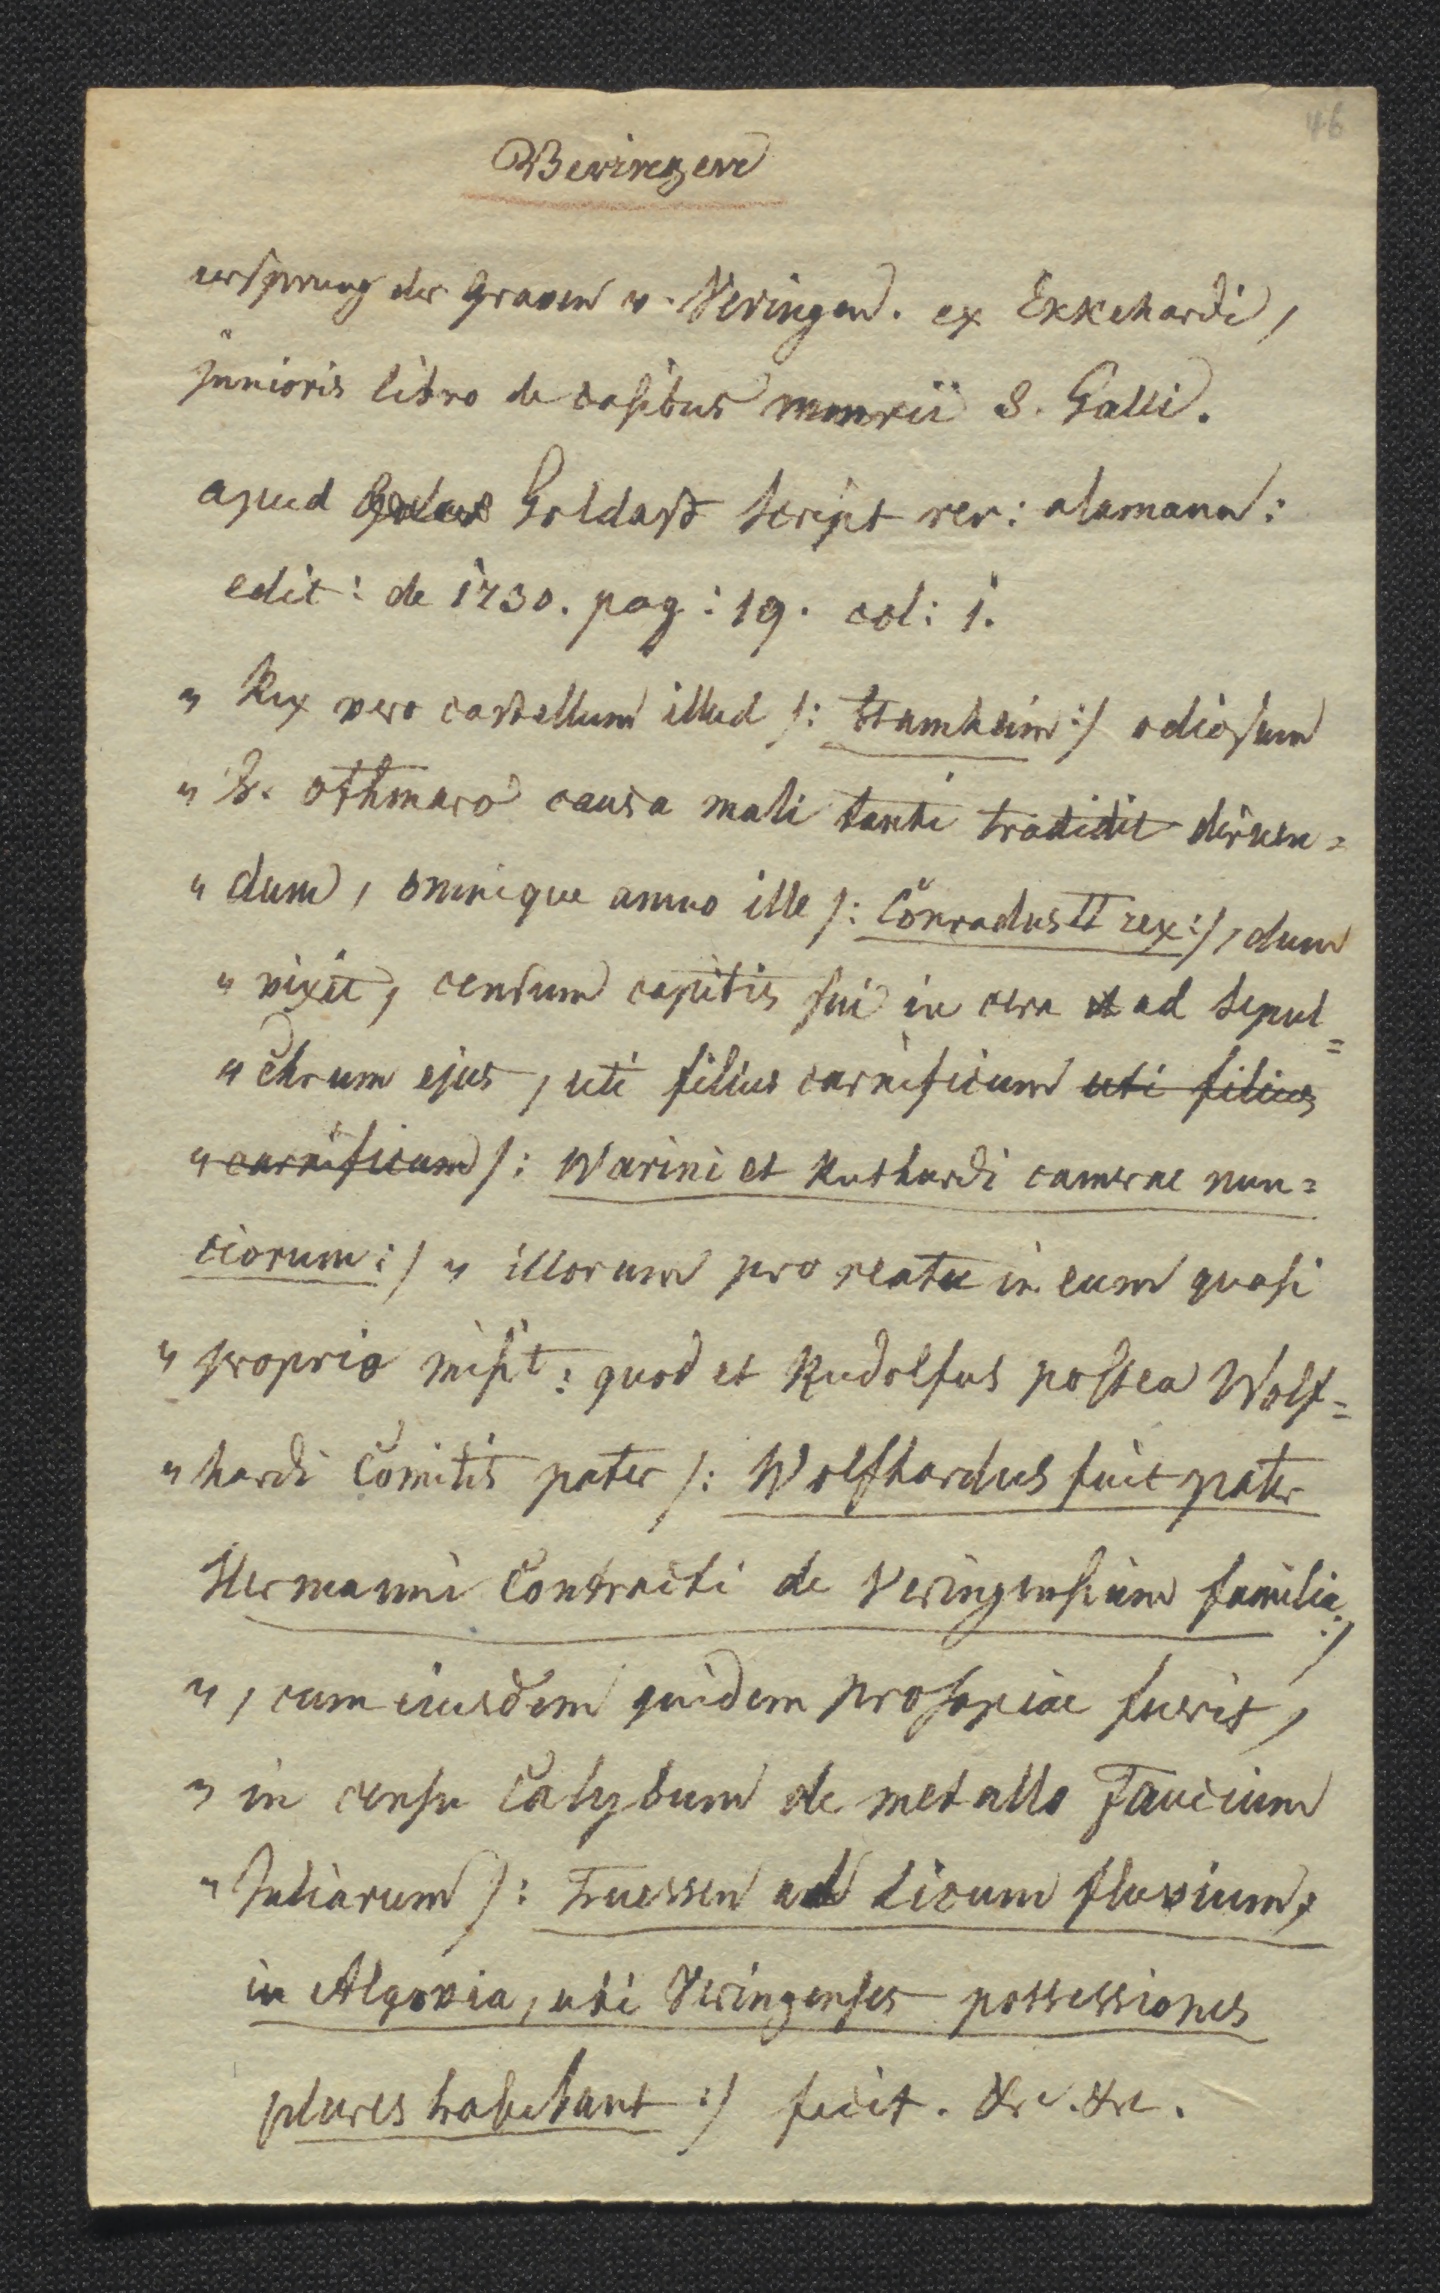 46
Veringen
ursprung der Graven v. Veringen. ex Ekkehardi,
junioris libro de casibus mnrii S. Galli.
apud Goldast script rer: alamann:
edit: de 1730. pag: 19. col: 1.
" Rex vero castellum illud /: Stamheim :/ odiosum
" S. Othmaro causa mali tanti tradidit diruen=
" dum, omnique anno ille /: Conradus II rex :/, dum
" vixit, censum capitis sui in cera ad sepul=
" chrum ejus, uti filius carnificum uti filius
" carnificum /: Warini et Ruthardi camerae nun=
ciorum :/ " illorum pro reatu in eum quasi
" proprio misit: quod et Rudolfus postea Wolf=
" hardi Comitis pater /: Wolfhardus fuit pater
Hermanni Contracti de Veringensium familia :/
" , cum eiusdem quidem prosapiae fuerit,
" in censu Calybum de metallo Faucium
" Juliarum /: Fuessen ad Licum fluvium,
in Algovia, ubi Veringenses possessiones
plures habebant :/ fecit. &c. &c.